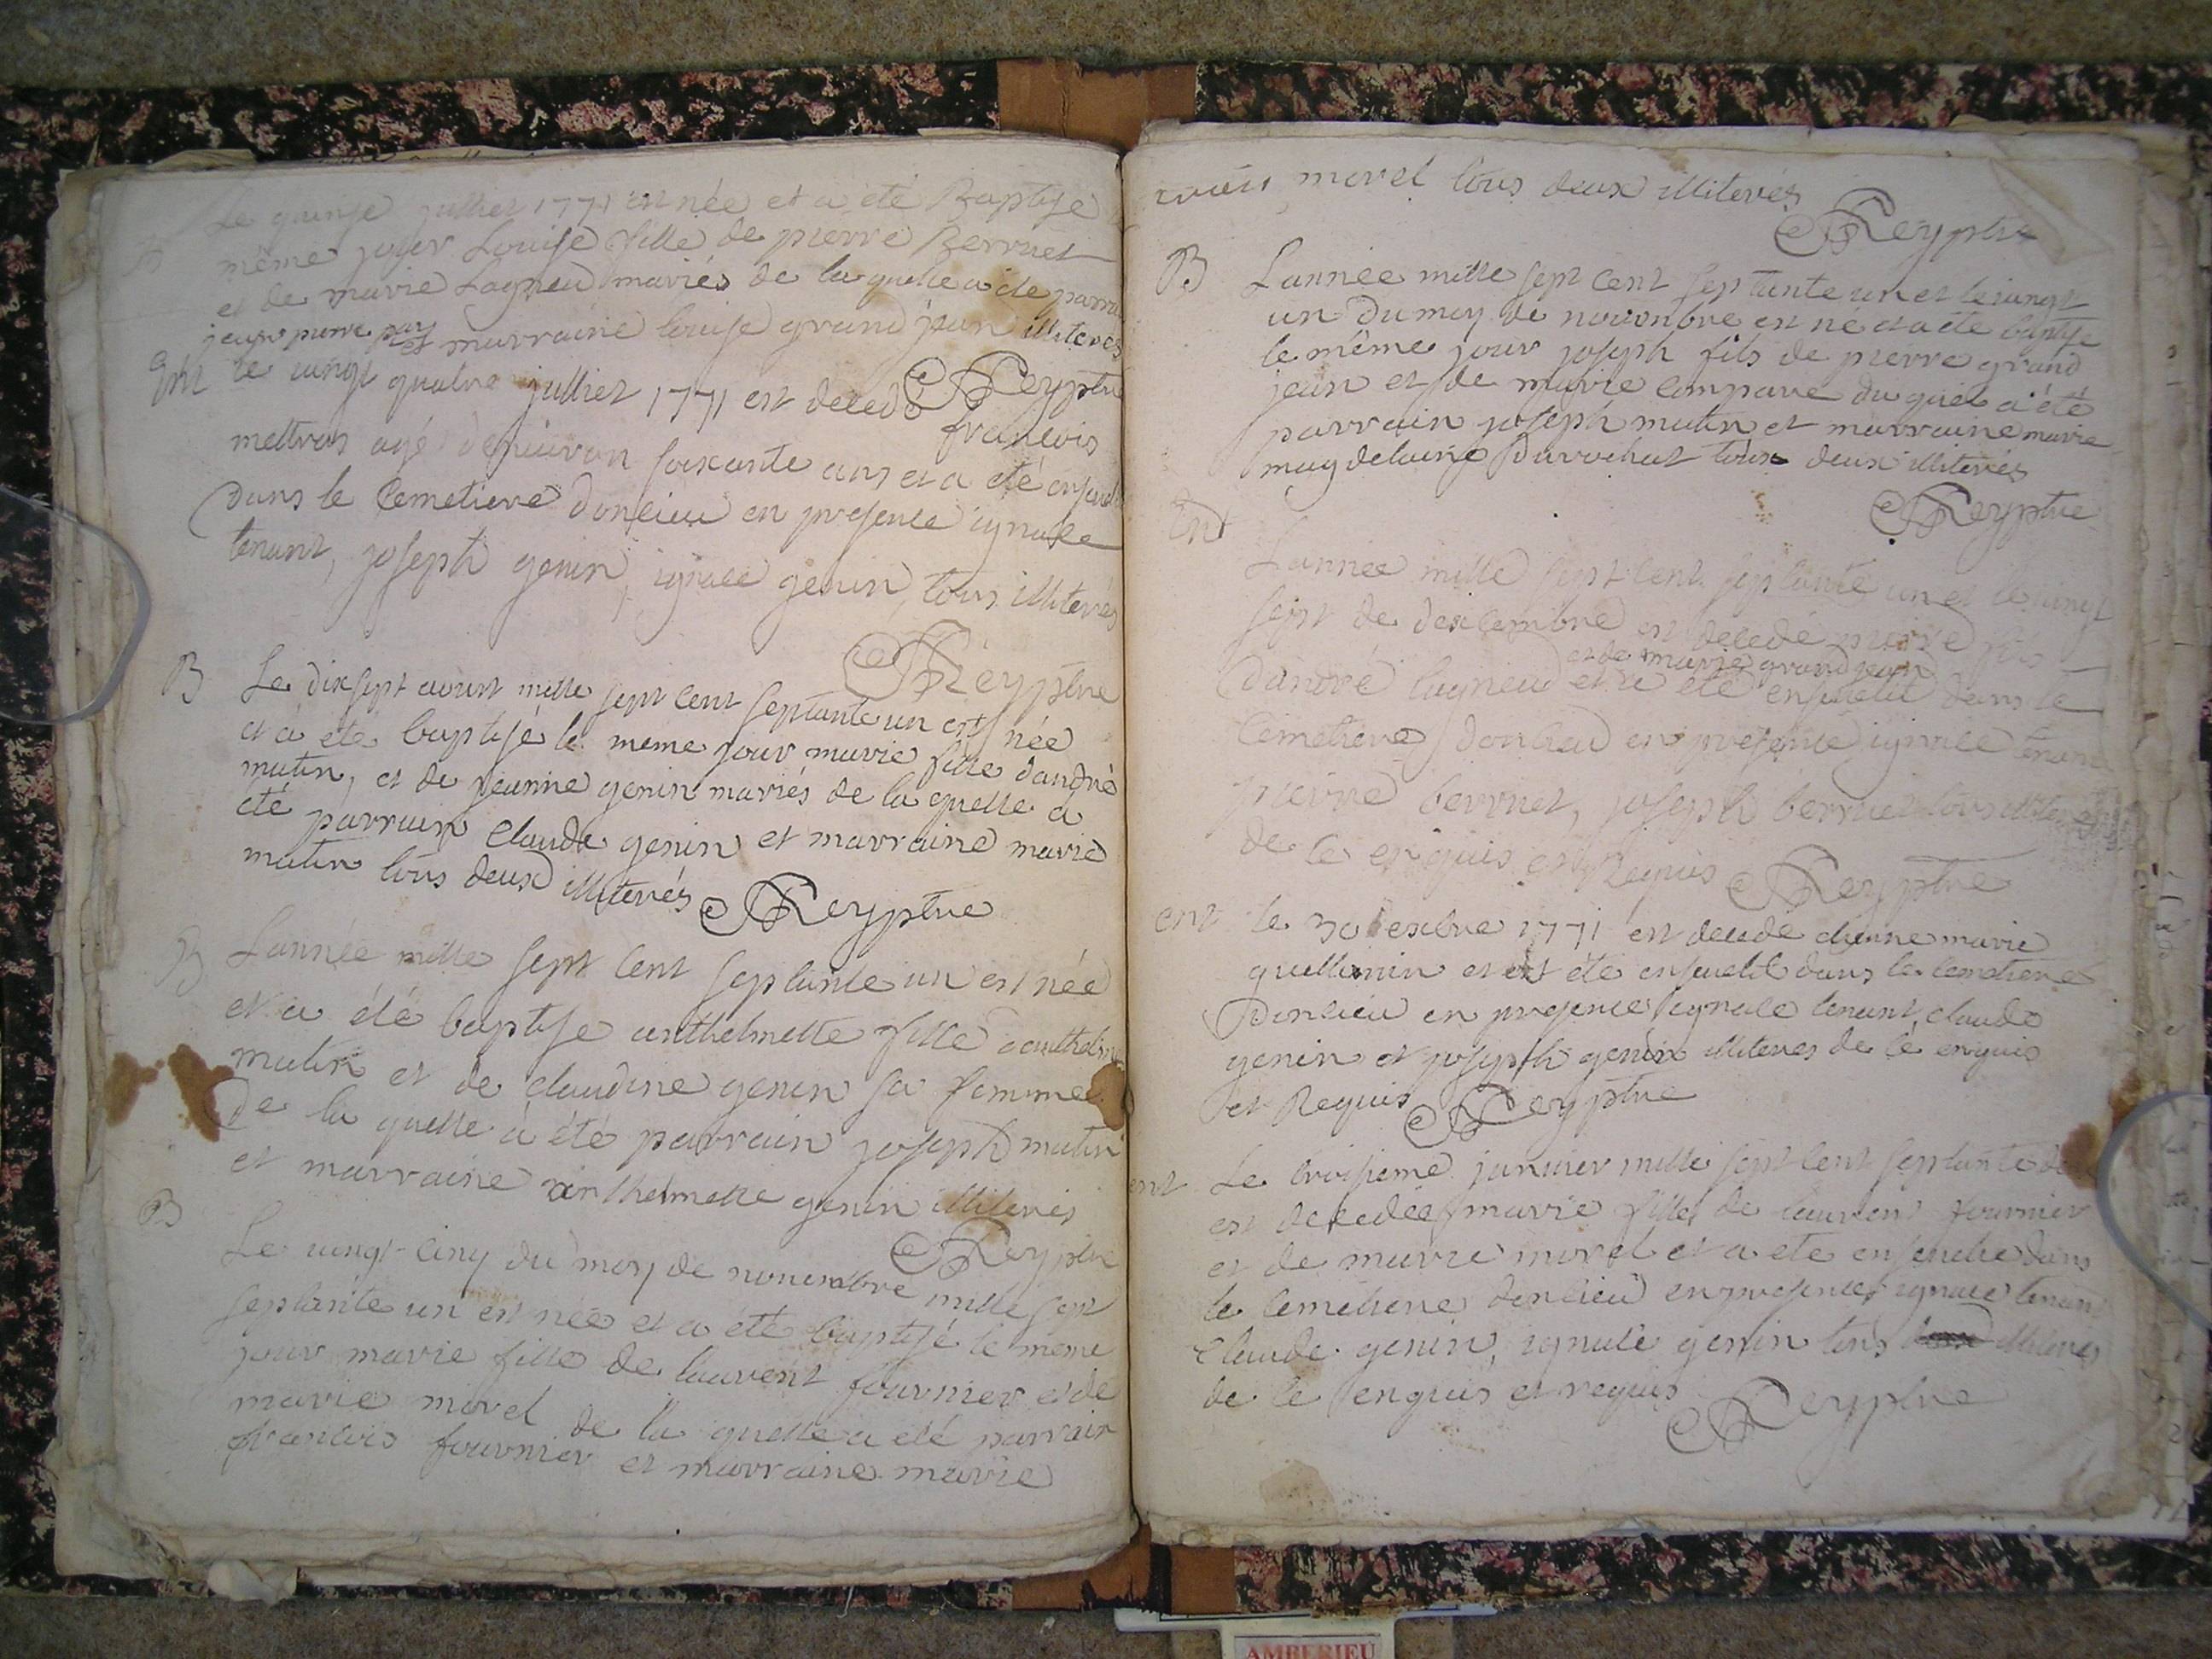 Le quinse julliet 1771 est née et a été Baptise
B
même jour Louise fille de pierre Berruet
et de marie Lagneu mariés de la quelle a ete parrain
jean pierre
et marraine louise grand jean illiterés
Reyptre
Ent
le vingt quatre julliet 1771 est decedé francois
mettras agé denviron soixante ans et a été enseveli
dans le Cemetiere donlieu en presence ignace
tenant, joseph genin, ignace genin, tous illiterés
Reyptre
B
Le dix sept aoust mille sept cent septante un est née
et a été baptisé le meme jour marie fille dandré
mutin, et de jeanne genin mariés de la quelle a
été parrain Claude genin et marraine marie
mutin tous deux illiterés Reyptre
B
Lannée mille sept cent septante un est née
et a été baptise anthelmette fille danthelme
mutin et de claudine genin sa femme
de la quelle a été parrain joseph mutin
et marraine anthelmette genin illiterés
Reyptre
B
Le vingt-cinq du moy de novembre mille sept
septante un est née et a été baptisé le meme
jour marie fille de laurent fournier et de
marie morel de la quelle a été parrain
francois fournier et marraine marie
morel tous deux illiterés
Reyptre
B
Lannée mille sept cent septante un et le vingt
un du moy de novembre est né et a été baptise
le même jour joseph fils de pierre grand
jean et de marie compare du quel a été
parrain joseph mutin et marraine marie
magdelaine Durochat tous deux illiterés
Reyptre
Ent
Lannée mille sept cent septante un et le vingt
sept de dexcembre est decede pierre fils
et de marie grand jean
dandré lagneu et a été enseveli dans le
Cemetiere donlieu en presence ignace tenant
pierre berruet, joseph berruet tous illiterés
de ce enquis et Requis Reyptre
ent
le 30 excbre 1771 est decedé etienne marie
guillemin et a été enseveli dans le cemetiere
Donlieu en presence ignace tenant claude
genin et joseph genin illiteres de ce enquis
et Requis Reyptre
ent
Le troisieme janvier mille sept cent septante deux
est decedée marie fille de laurent fournier
et de marie morel et a ete ensevelie dans
le cemetiere donlieu en presence ignace tenant
Claude genin, ignace genin tous illiteres
de ce enquis et requis Reyptre
AMBERIEU